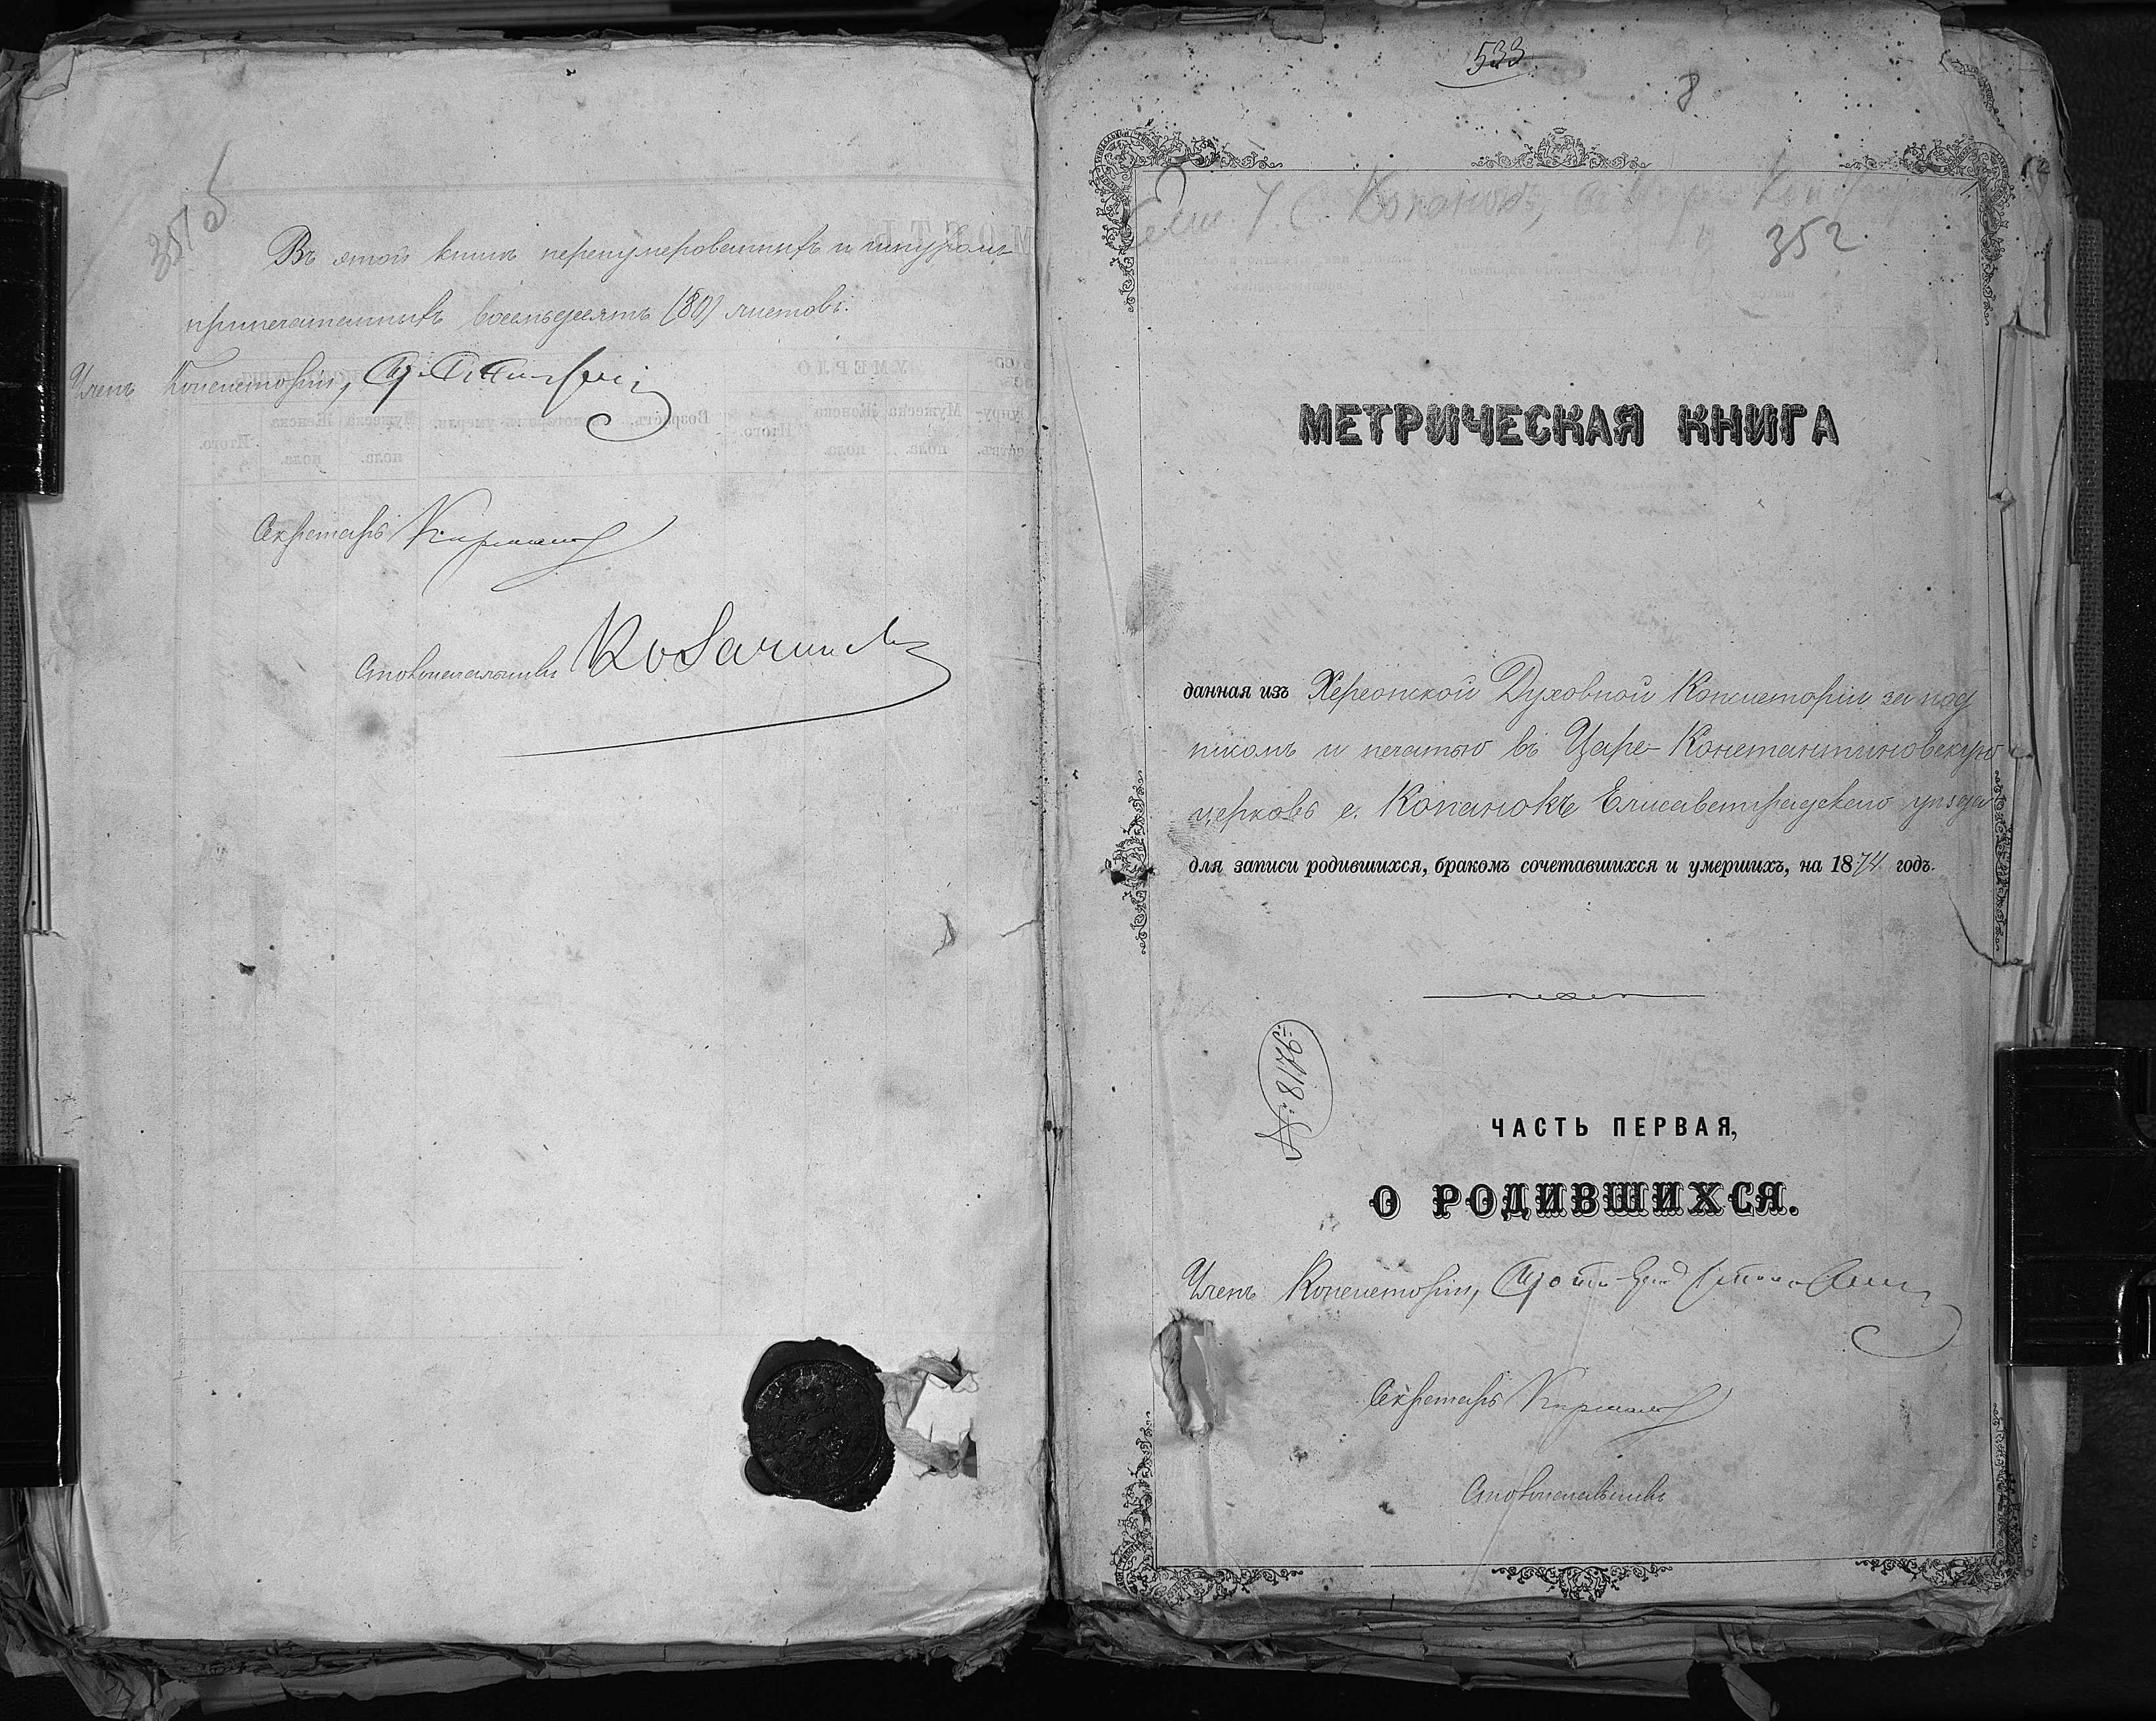 351 об
Въ этой книгѣ перенумерованныхъ и шнуромъ
припечатанныхъ восемьдесятъ (80) листовъ.
Членъ Консисторіи,
Секретарь
Столоначальникъ
533
8
Елис. у. с. Копанокъ,
352
МЕТРИЧЕСКАЯ КНИГА
данная изъ Херсонской Духовной Консисторіи за под
писомъ и печатью въ Царе-Константиновскую
церковь с. Копанокъ Елисаветградскаго уѣзда
для записи родившихся, бракомъ сочетавшихся и умершихъ, на 1874 годъ.
№ 8117
ЧАСТЬ ПЕРВАЯ,
О РОДИВШИХСЯ.
Членъ Консисторіи,
Секретарь
Столоначальникъ